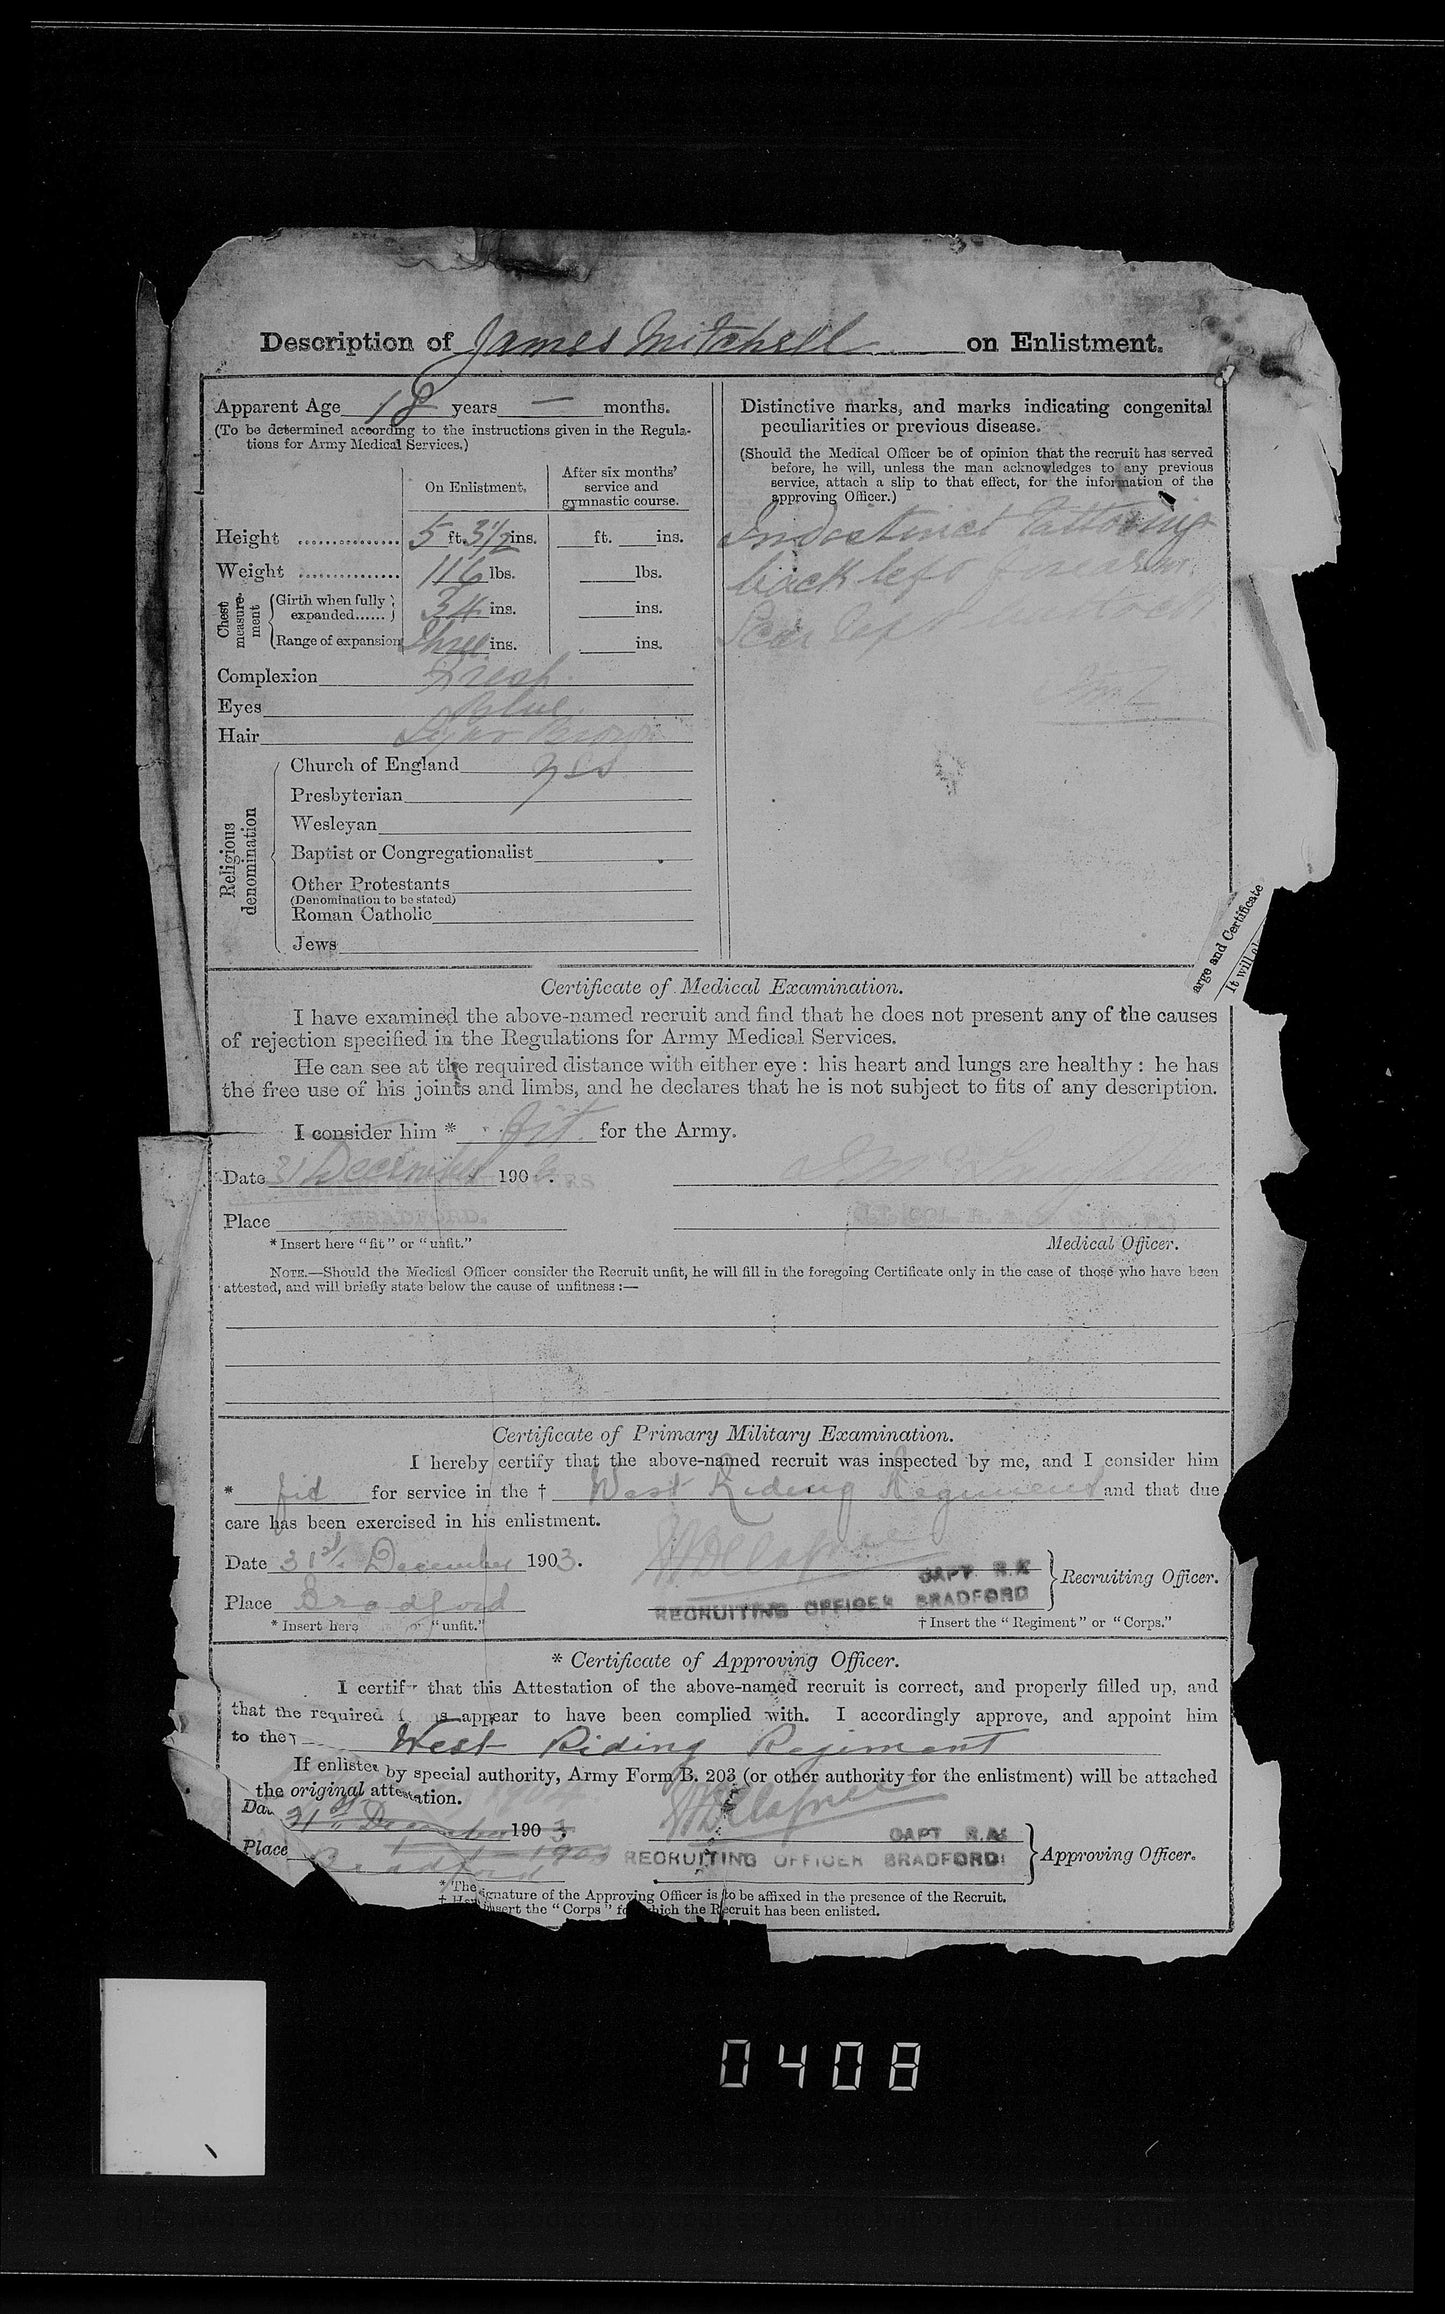 Description of James Mitchell on Enlistment.
Apparent Age 18 years — months.
(To be determined according to the instructions given in the Regula-
tions for Army Medical Services.)
On Enlistment.
After six months'
service and
gymnastic course.
Height ............... 5 ft. 3 1/2 ins. ft. ins.
Weight ............... 116 lbs. lbs.
Chest measure-ment
Girth when fully expanded...... 34 ins. ins.
Range of expansion Three ins. ins.
Complexion Fresh.
Eyes Blue.
Hair Brown
Religious denomination
Church of England Yes
Presbyterian
Wesleyan
Baptist or Congregationalist
Other Protestants
(Denomination to be stated)
Roman Catholic
Jews
Distinctive marks, and marks indicating congenital
peculiarities or previous disease.
(Should the Medical Officer be of opinion that the recruit has served
before, he will, unless the man acknowledges to any previous
service, attach a slip to that effect, for the information of the
approving Officer.)
Indistinct Tattooing
back left forearm.
Scar left
arge and Certificate
It will
Certificate of Medical Examination.
I have examined the above-named recruit and find that he does not present any of the causes
of rejection specified in the Regulations for Army Medical Services.
He can see at the required distance with either eye : his heart and lungs are healthy : he has
the free use of his joints and limbs, and he declares that he is not subject to fits of any description.
I consider him * fit. for the Army.
Date 31 December 190 .
Place BRADFORD.
* Insert here "fit" or "unfit."
Medical Officer.
NOTE.—Should the Medical Officer consider the Recruit unfit, he will fill in the foregoing Certificate only in the case of those who have been
attested, and will briefly state below the cause of unfitness :—
Certificate of Primary Military Examination.
I hereby certify that the above-named recruit was inspected by me, and I consider him
* fit for service in the † West Riding Regiment and that due
care has been exercised in his enlistment.
Date 31st December 1903.
CAPT R.A
Recruiting Officer.
Place Bradford
RECRUITING OFFICER BRADFORD
* Insert here or "unfit."
† Insert the "Regiment" or "Corps."
* Certificate of Approving Officer.
I certify that this Attestation of the above-named recruit is correct, and properly filled up, and
that the required appear to have been complied with. I accordingly approve, and appoint him
to the † West Riding Regiment
If enlisted by special authority, Army Form B. 203 (or other authority for the enlistment) will be attached
the original attestation.
Dat 31st December 1903.
CAPT R.A.
Place Bradford
RECRUITING OFFICER BRADFORD
Approving Officer.
* The signature of the Approving Officer is to be affixed in the presence of the Recruit.
† Here insert the "Corps" for which the Recruit has been enlisted.
0408